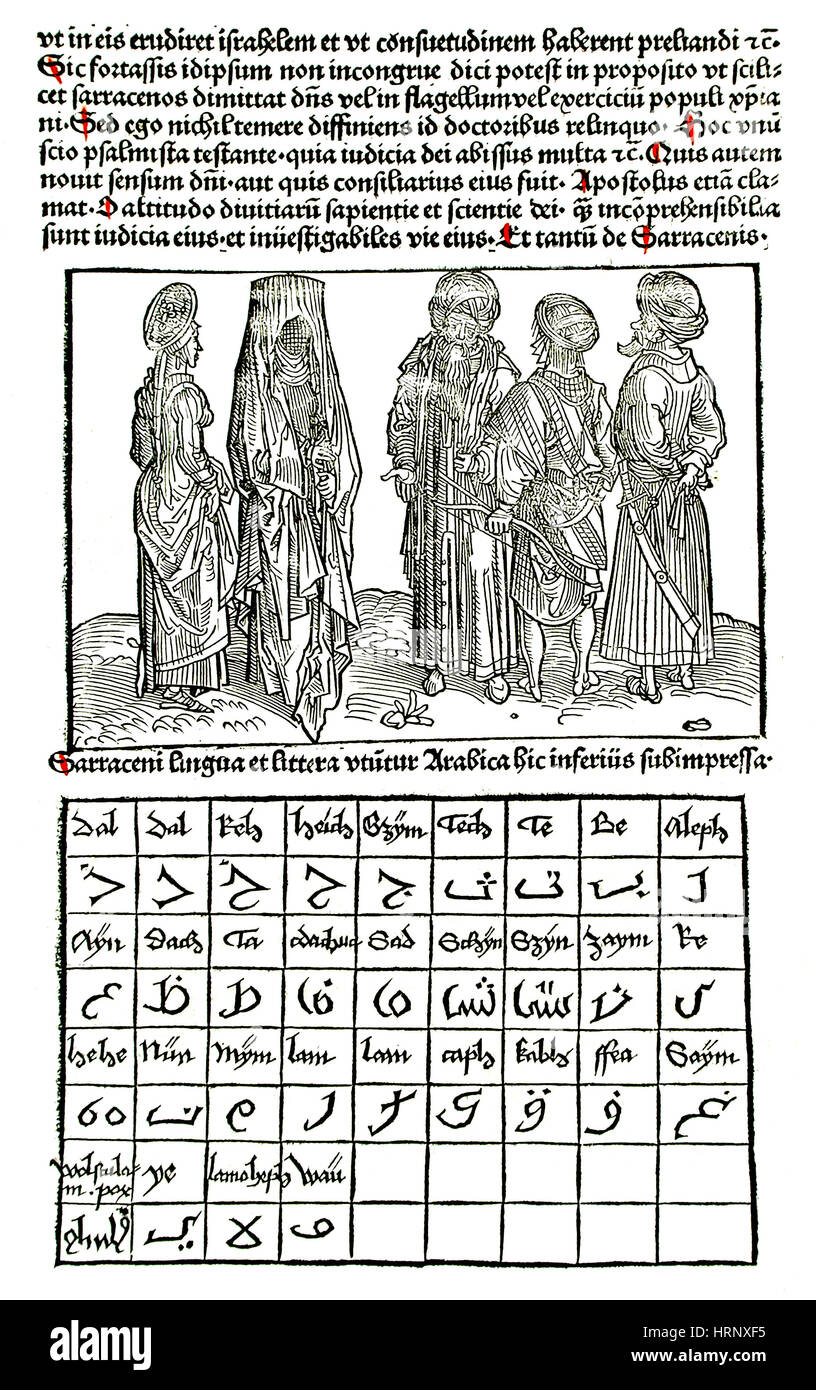 vt in eis erudiret israhelem et vt consuetudinem haberent preliandi ⁊c̄.
Sic fortassis idipsum non incongrue dici potest in proposito vt scili-
cet sarracenos dimittat dn̄s vel in flagellum vel exerciciū populi xp̄ia
ni. Sed ego nichil temere diffiniens id doctoribus relinquo. Hoc vnū
scio psalmista testante. quia iudicia dei abissus multa ⁊c̄. Quis autem
nouit sensum dn̄i. aut quis consiliarius eius fuit. Apostolus etiā cla-
mat. O altitudo diuitiarū sapientie et scientie dei. q̄ incōprehensibilia
sunt iudicia eius. et inüestigabiles vie eius. Et tantū de Sarracenis.
Sarraceni lingua et littera vtūtur Arabica hic inferiüs subimpressa.
Dal Dal Keh heich Gzÿm Tech Te Be Aleph
ذ د خ ح ج ث ت ب ا
Aÿn Dach Ta Sad Schÿn Szÿn zaym Re
ع ظ ط ض ص ش س ز ر
hehe Nün Mÿm lam lam caph kabh ffea Gaÿm
ه ن م ل ل ك ق ف غ
ye lamoheph Waü
ي لا و
alamy
Image ID: HRNXF5
www.alamy.com